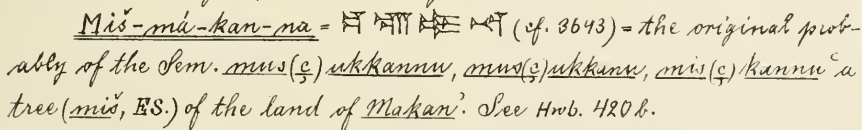 Miš-má-kan-na = (cf. 3643) = the original prob-
ably of the Sem. mus(ṣ)ukkannu, mus(ṣ)ukkanu, mis(ṣ)kannu 'a
tree (miš, ES.) of the land of Makan'. See Hwb. 420 b.